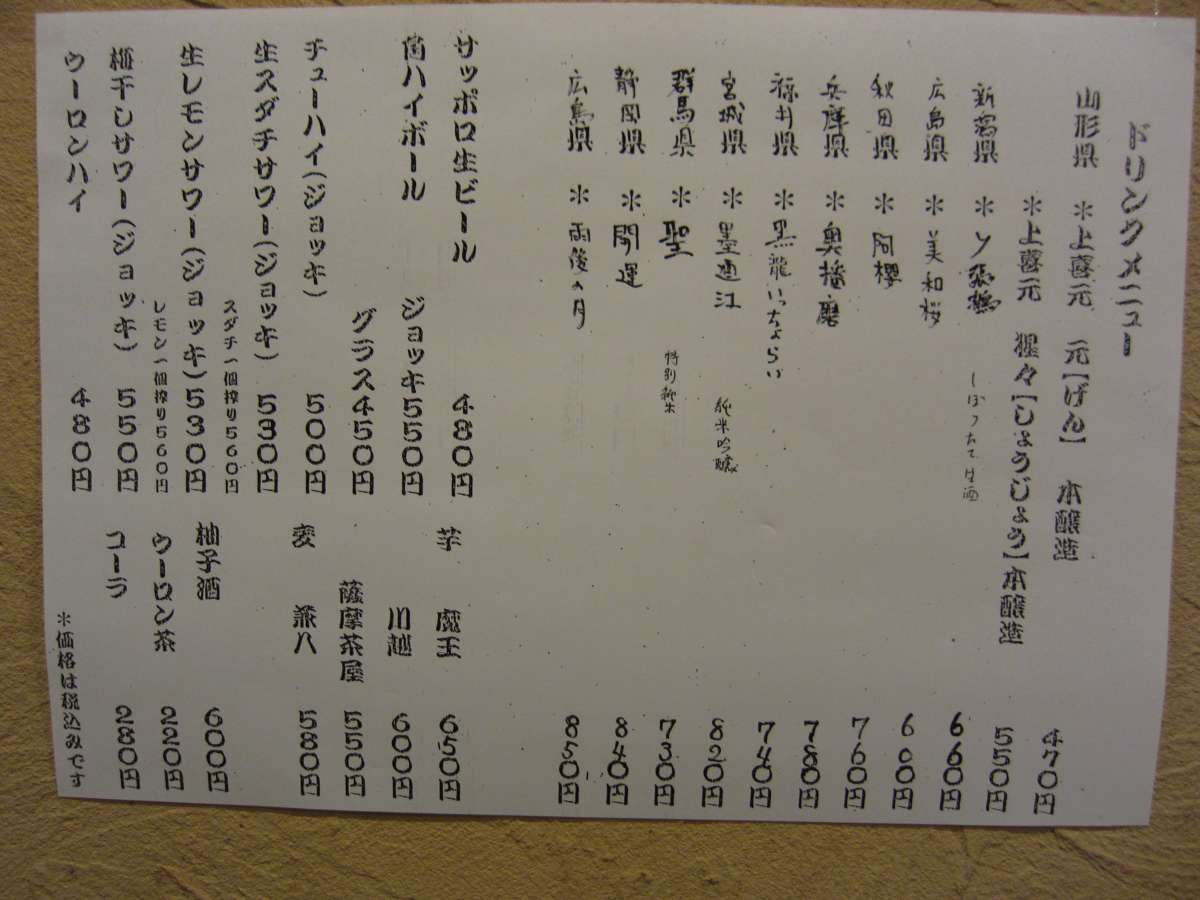 ドリンクメニュー
山形県 *上喜元 元【げん】 本醸造 470円
*上喜元 猩々【しょうじょう】本醸造 550円
新潟県 *〆張鶴 しぼりたて生酒 660円
広島県 *美和桜 600円
秋田県 *阿櫻 760円
兵庫県 *奥播磨 780円
福井県 *黒龍いっちょらい 740円
宮城県 *墨廼江 純米吟醸 820円
群馬県 *聖 特別純米 730円
静岡県 *開運 840円
広島県 *雨後の月 850円
サッポロ生ビール 480円
角ハイボール ジョッキ550円
グラス450円
チューハイ(ジョッキ) 500円
生スダチサワー(ジョッキ) 530円
スダチ一個搾り560円
生レモンサワー(ジョッキ)530円
レモン一個搾り560円
梅干しサワー(ジョッキ) 550円
ウーロンハイ 480円
芋 魔王 650円
川越 600円
薩摩茶屋 550円
麦 兼八 580円
柚子酒 600円
ウーロン茶 220円
コーラ 280円
*価格は税込みです